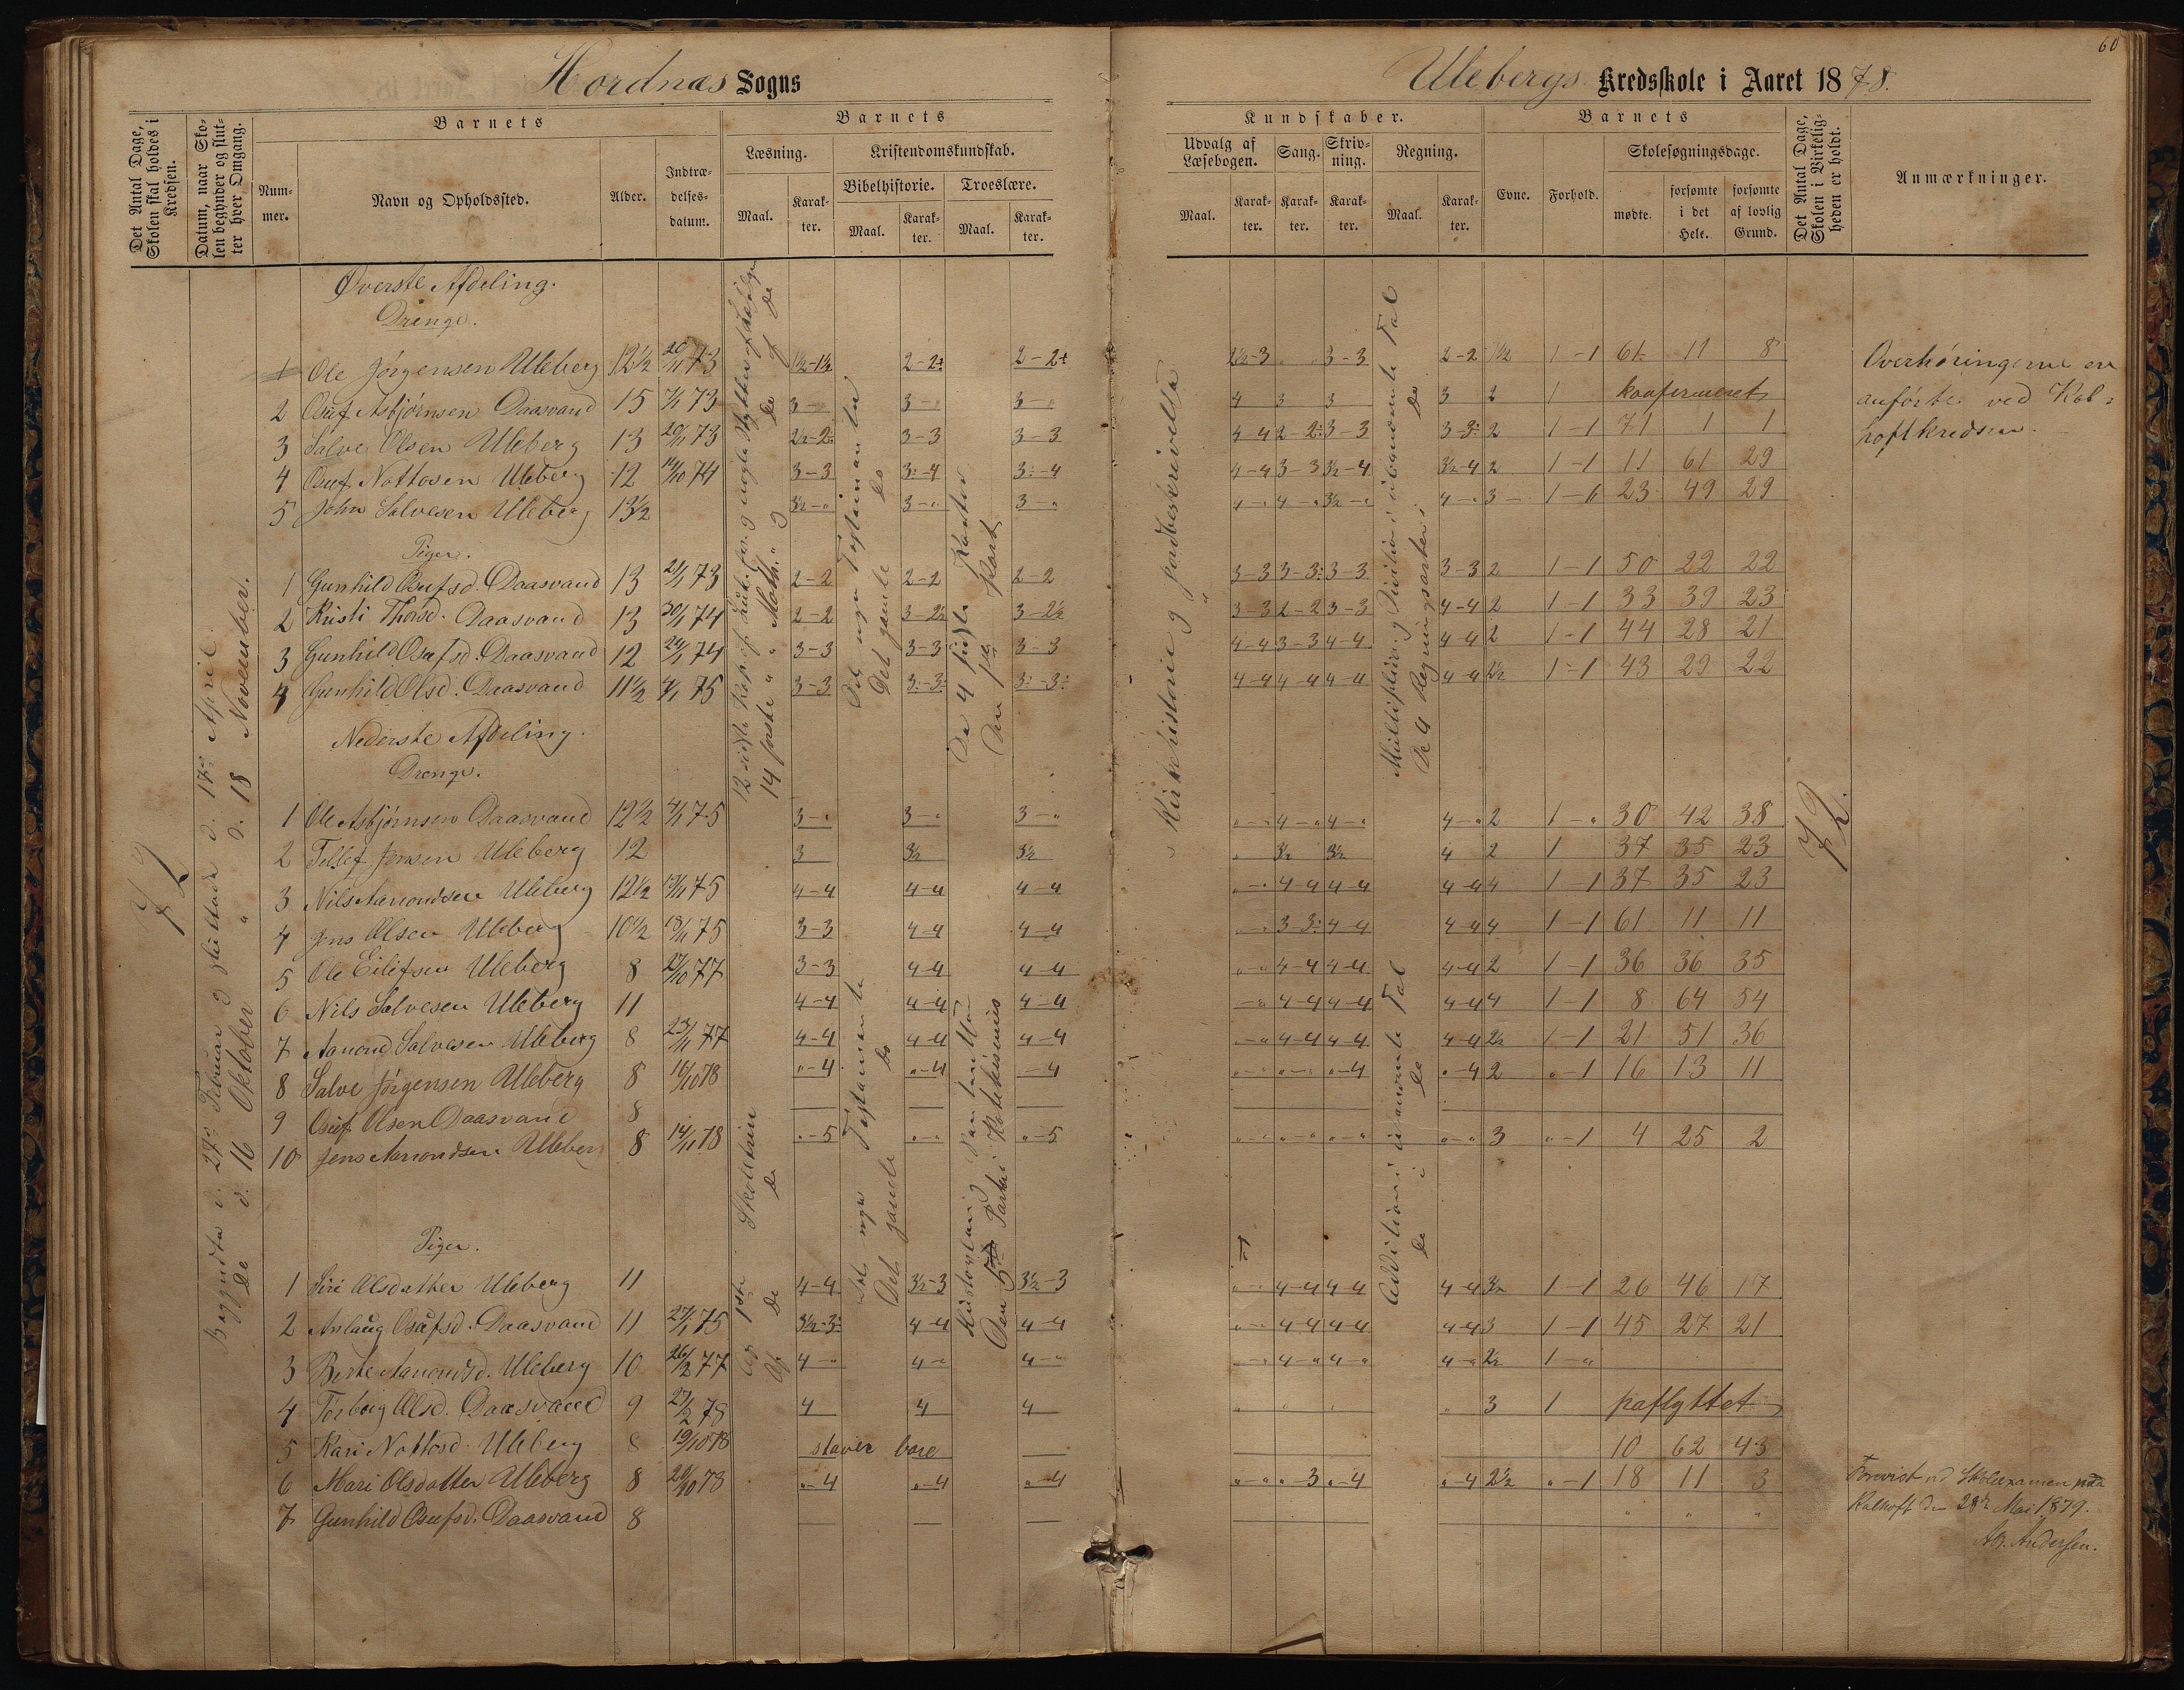 60
Hordnæs Sogns
Ulebergs Kredsskole i Aaret 1878.
Det Antal Dage, Skolen skal holdes i Kredsen.
Datum, naar Skolen begynder og slutter hver Omgang.
Barnets
Nummer.
Navn og Opholdssted.
Alder.
Indtrædelsesdatum.
Barnets
Læsning.
Maal.
Karakter.
Kristendomskundskab.
Bibelhistorie.
Maal.
Karakter.
Troeslære.
Maal.
Karakter.
Kundskaber.
Udvalg af Læsebogen.
Maal.
Karakter.
Sang.
Karakter.
Skrivning.
Karakter.
Regning.
Maal.
Karakter.
Barnets
Evne.
Forhold.
Skolesøgningsdage.
mødte.
forsømte i det Hele.
forsømte af lovlig Grund.
Det Antal Dage, Skolen i Virkeligheden er holdt.
Anmærkninger.
72
Begyndte d. 27de Februar og sluttede d. 17de April
De d. 16 Oktober " d. 18 November.
Øverste Afdeling.
Drenge.
1 Ole Jørgensen Uleberg 12½ 20/11 73 1½-1½ 2-2+ 2-2+ 2½-3 " " 3-3 2-2 1½ 1-1 61 11 8
2 Osuf Asbjørnsen Daasvand 15 7/1 73 3-" 3-" 3-" 4 3 3 3 2 1 konfirmeret
3 Salve Olsen Uleberg 13 20/11 73 2½-2: 3-3 3-3 4-4 2-2: 3-3 3-3: 2 1-1 71 1 1
4 Osuf Nottosen Uleberg 12 14/10 74 3-3 3:-4 3:-4 4-4 3-3 3½-4 3½-4 2 1-1 11 61 29
5 John Salvesen Uleberg 13½ 3½-" 3-" 3-" 4-" 4-" 3½-" 4-" 3 1-6 23 49 29
Piger.
1 Gunhild Osufsd. Daasvand 13 21/1 73 2-2 2-2 2-2 3-3 3-3: 3-3 3-3 2 1-1 50 22 22
2 Kristi Thorsd. Daasvand 13 30/1 74 2-2 3-2½ 3-2½ 3-3 2-2 3-3 4-4 2 1-1 33 39 23
3 Gunhild Osufsd. Daasvand 12 24/1 74 3-3 3-3 3-3 4-4 3-3 4-4 4-4 2 1-1 44 28 21
4 Gunhild Olsd. Daasvand 11½ 4/1 75 3-3 3:-3: 3:-3: 4-4 4-4 4-4 4-4 2½ 1-1 43 29 22
Nederste Afdeling.
Drenge.
1 Ole Asbjørnsen Daasvand 12½ 4/1 75 3-" 3-" 3-" "-" 4-" 4-" 4-" 2 1-" 30 42 38
2 Tellef Jensen Uleberg 12 3 3½ 3½ " 3½ 3½ 4 2 1 37 35 23
3 Nils Aanondsen Uleberg 12½ 17/11 75 4-4 4-4 4-4 "-" 4-4 4-4 4-4 4 1-1 37 35 23
4 Jens Olsen Uleberg 10½ 18/11 75 3-3 4-4 4-4 "-" 3-3: 4-4 4-4 4 1-1 61 11 11
5 Ole Eilefsen Uleberg 8 27/10 77 3-3 4-4 4-4 "-" 4-4 4-4 4-4 2 1-1 36 36 35
6 Nils Salvesen Uleberg 11 4-4 4-4 4-4 "-" 4-4 4-4 4-4 4 1-1 8 64 54
7 Aanond Salvesen Uleberg 8 23/11 77 4-4 4-4 4-4 "-" 4-4 4-4 4-4 2½ 1-1 21 51 36
8 Salve Jørgensen Uleberg 8 16/10 78 "-4 "-4 -4 "-" "-" "-4 "-4 2 "-1 16 13 11
9 Osuf Olsen Daasvand 8
10 Jens Aanondsen Uleberg 8 14/11 78 "-5 "-" "-5 "-" "-" "-" "-" 3 "-1 4 25 2
Piger.
1 Siri Olsdatter Uleberg 11 4-4 3½-3 3½-3 "-" 4-4 4-4 4-4 3½ 1-1 26 46 17
2 Anlaug Osufsd. Daasvand 11 27/1 75 3½-3: 4-4 4-4 "-" 4-4 4-4 4-4 3 1-1 45 27 21
3 Berte Aanondsd. Uleberg 10 26/2 77 4-" 4-" 4-" "-" 4-" 4-" 4-" 2½ 1-"
4 Torborg Olsd. Daasvand 9 27/2 78 4 4 4 " " " " 3 1 paflyttet
5 Kari Nottosd. Uleberg 8 19/10 78 staver bare 10 62 43
6 Mari Olsdatter Uleberg 8 20/10 78 "-4 "-4 "-4 "-" "-3 "-4 "-4 2½ "-1 18 11 3
7 Gunhild Osufsd. Daasvand 8 " " "
14 første " " Math. "
Det nye Testamente
Det gamle do
De 4 sidste Parter
Den 1ste Part
Kirkehistorie og Jordbeskrivelse
Multiplik. og Division i ubenævnte Tal
De 4 Regningsarter i do
Af 1ste Skoletrin
Af De do
Det nye Testamente
Det gamle do
Den 5te Part i Katekismus
Addition i ubenævnte Tal
De i do
72.
Overhøringerne er
anførte ved Kal-
hoftkredsen.
Forevist ved Skoleexamen paa
Kalhoft den 28de Mai 1879.
Ab. Andersen.